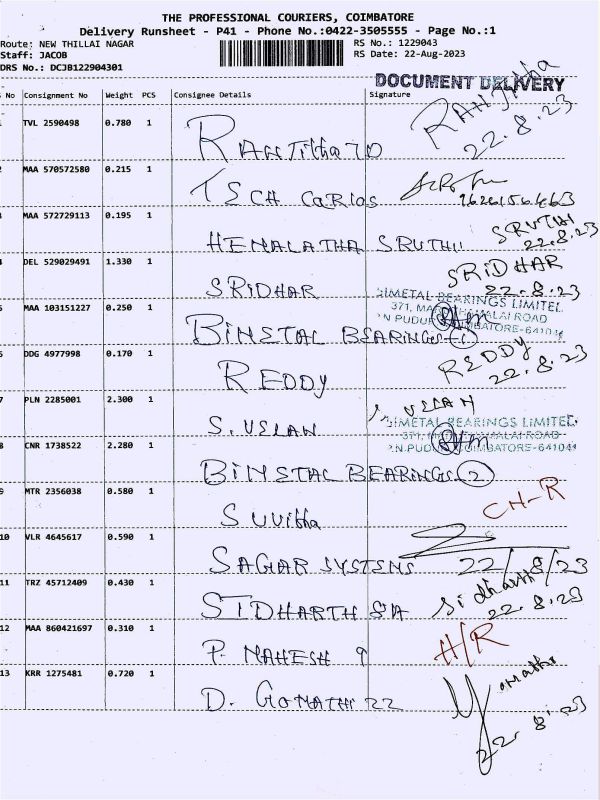 THE PROFESSIONAL COURIERS, COIMBATORE
Delivery Runsheet - P41 - Phone No.:0422-3505555 - Page No.:1
Route: NEW THILLAI NAGAR RS No.: 1229043
Staff: JACOB RS Date: 22-Aug-2023
DRS No.: DCJB122904301
DOCUMENT DELIVERY
S No Consignment No Weight PCS Consignee Details Signature
1 TVL 2590498 0.780 1 RANJitha 22.8.23
2 MAA 570572580 0.215 1 TECH CARLOS
3 MAA 572729113 0.195 1 HEMALATHA SRUTHI SRUTHI 22.8.23
4 DEL 529029491 1.330 1 SRIDHAR SRIDHAR 22.8.23
5 MAA 103151227 0.250 1 BIMETAL BEARINGS-1
BIMETAL BEARINGS LIMITED
371, ROAD
COIMBATORE-641041
6 DDG 4977998 0.170 1 REDDY REDDY 22.8.23
7 PLN 2285001 2.300 1 S. VELAN VELAN
8 CNR 1738522 2.280 1 BIMETAL BEARINGS 2
BIMETAL BEARINGS LIMITED
371, ROAD
COIMBATORE-641041
9 MTR 2356038 0.580 1 SUVitha CH-R
10 VLR 4645617 0.590 1 SAGAR SYSTEMS 22/8/23
11 TRZ 45712409 0.430 1 SIDHARTH Sidharth 22.8.23
12 MAA 860421697 0.310 1 P. MAHESH 9 H/R
13 KRR 1275481 0.720 1 D. GOMATHI 22 22.8.23